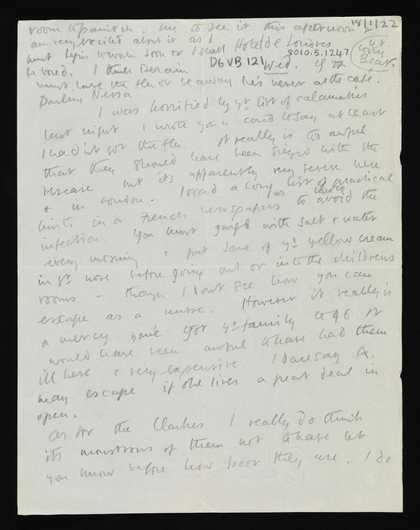 room to paint in. me to see it this afternoon
am very excited about it as I 18/1/22
must begin to work soon or I shall Hotel de Londres
be bored. I think Derain 8010.5.1247
must have the flu or be away he's never at the café.
DGVB 121 Wed.
Darling Nessa
I was horrified by yr list of calamities
last night. I wrote you a card to say at least
I hadn't got the flu. It really is too awful
that they should have been seized with the
disease but it's apparently very severe here
& in London. I read a long list of practical
hints in a French newspaper as to how to avoid the
infection. You must gargle with salt & water
every morning & put some of yr yellow cream
in yr nose before going out or into the childrens
rooms – though I don't see how you can
escape as a nurse. However it really is
a mercy you've got yr family to 46 It
would have been awful to have had them
ill here & very expensive I daresay A.
may escape if she lives a great deal in
open.
As for the Clarkes I really do think
its monstrous of them not to have let
you know before how poor they are. I do